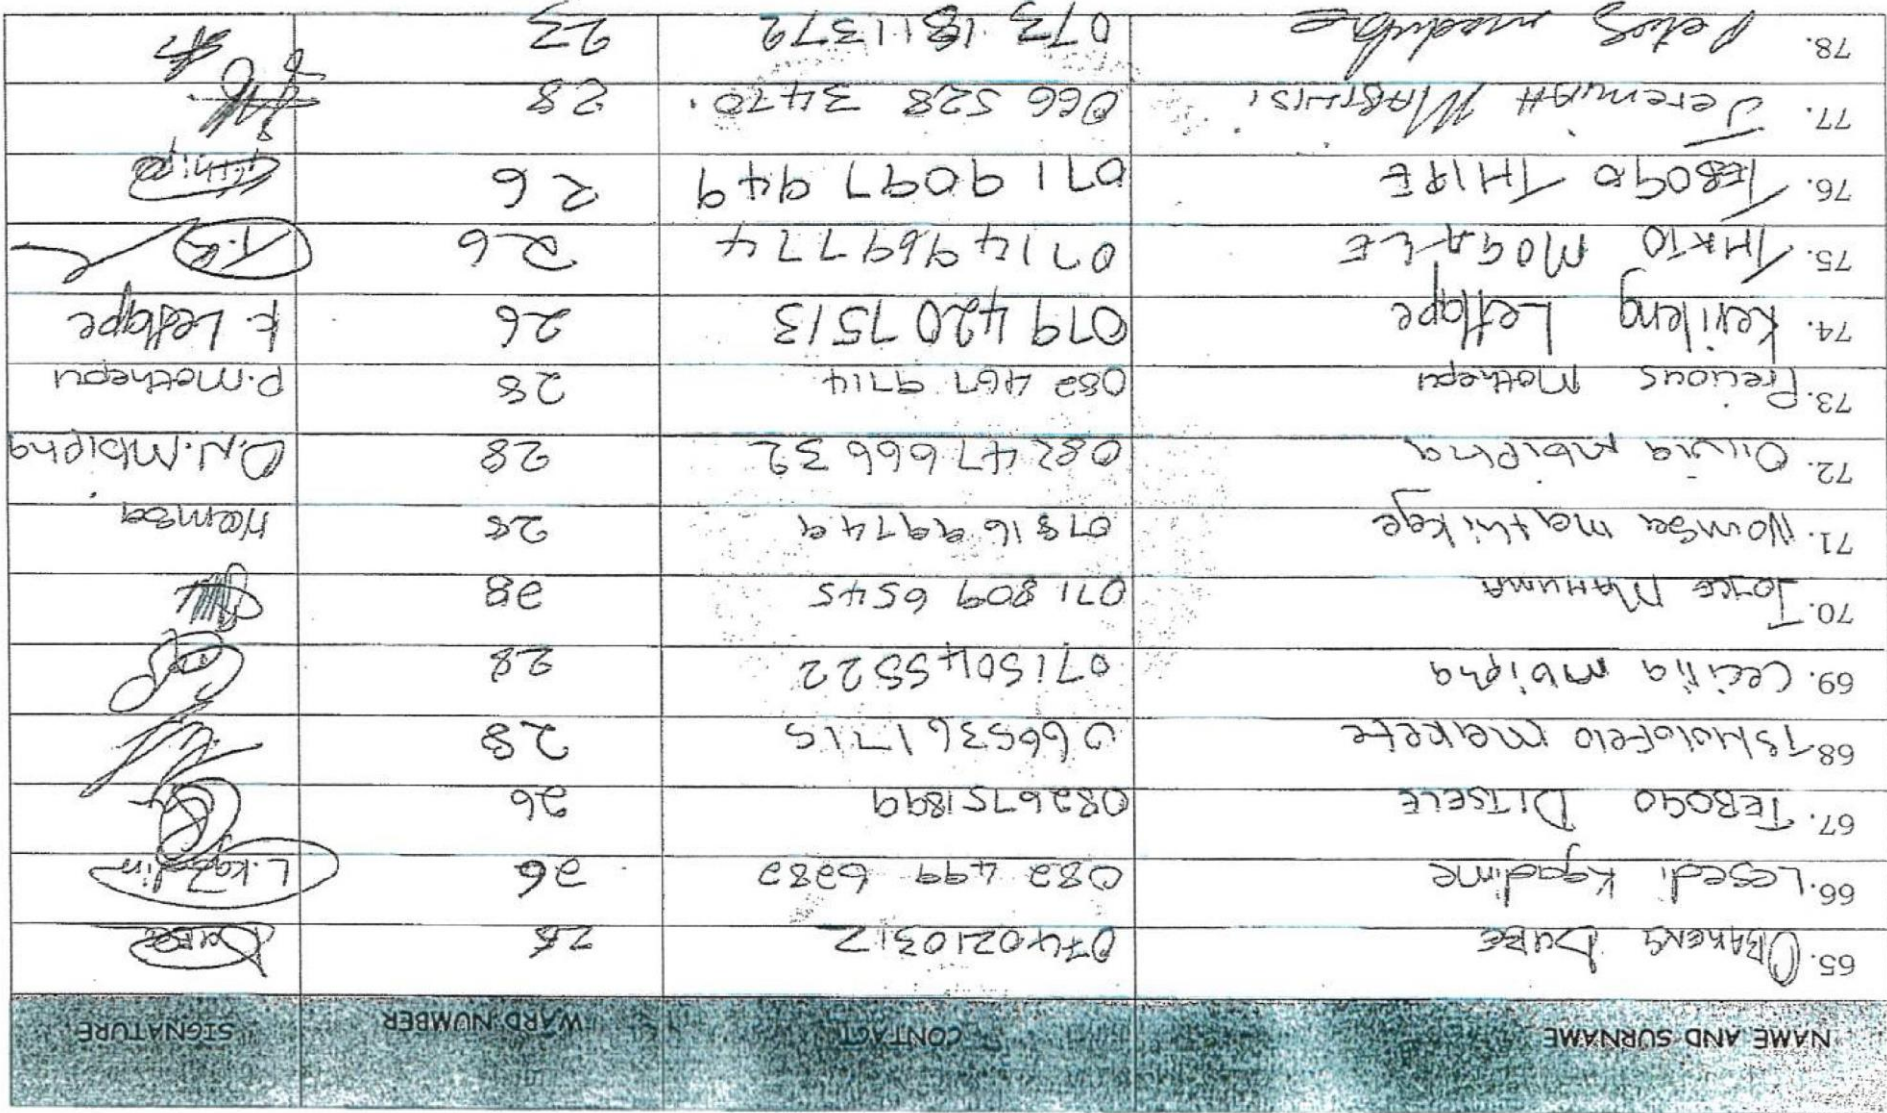 NAME AND SURNAME CONTACT WARD NUMBER SIGNATURE
65. OBAKENG DUBE 0740210312 28 Dube
66. Lesedi Kgadime 082 499 6282 26
67. TEBOGO DITSELE 0826751899 26
68. Tshiamofelo Makete 0665361715 28
69. Cecilia Mbipha 0715045522 28
70. Joyce MAHUMA 071 809 6545 28
71. Nomsa mathikge 28 Nomsa
72. Olivia Mbipha 0824766632 28 O.N.Mbipha
73. Precious Mothepu 082 467 9714 28 P.Mothepu
74. Kelileng Letlape 079 420 7513 26 K. Letlape
75. THATO MOGALE 0714969774 26 T.G
76. TEBOGO THIPE 071 9097 949 26 Thipe
77. Jeremiah 066 528 3470. 28
78. 23